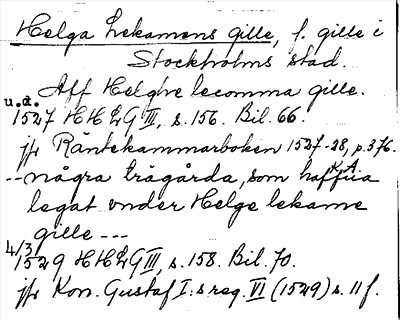 Helga Lekamens gille, f. gille i
Stockholms stad.
Aff Helghe lecomma gille.
u.d.
1527 HHLG III, s. 156. Bil. 66.
jfr Räntekammarboken 1527-28, p. 376.
--några trägårda, som haffua
legat vnder Helge lekame
gille ---
4/3
1529 HHLG III, s. 158. Bil. 70.
jfr Kon. Gustaf I:s reg. VI (1529) s. 11 f.